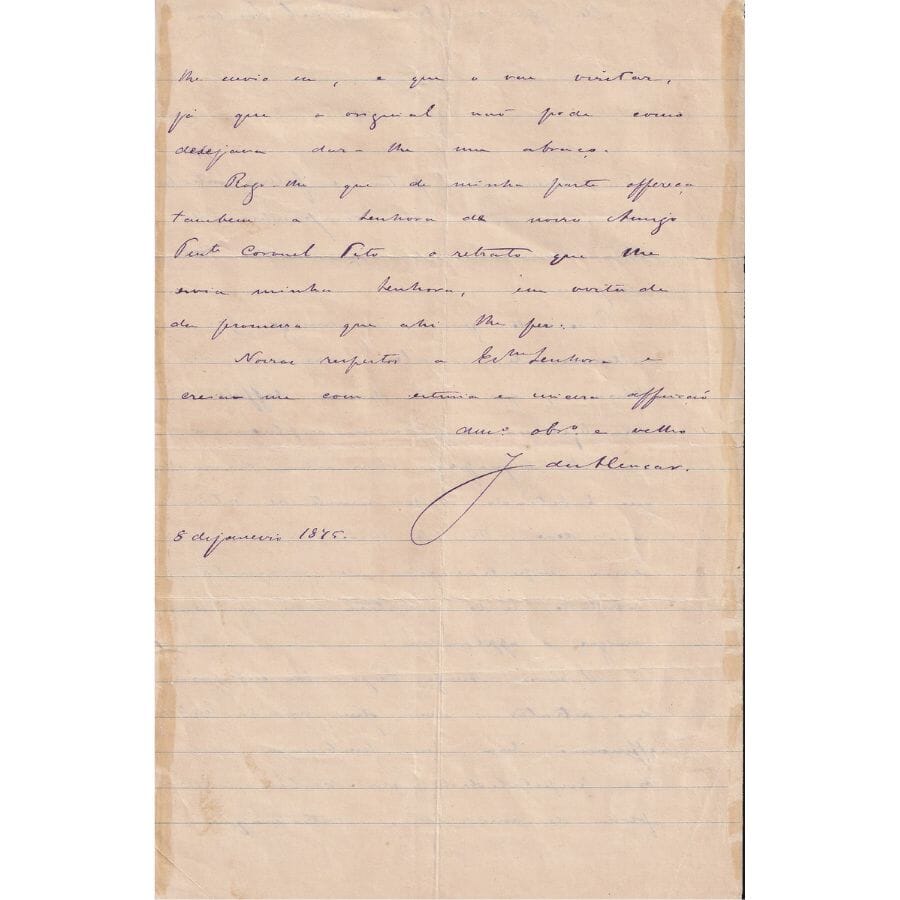 lhe envio eu, e que o vai visitar,
já que o original não pode como
desejava dar-lhe um abraço.
Rogo-lhe que de minha parte offereça
tambem a Senhora de nosso Amigo
Tente Coronel Tito o retrato que lhe
envia minha Senhora, em
da primeira que ahi lhe fez.
Nossos respeitos a Exma Senhora e
creia-me com estima e sincera affeição
amo. obro. e velho
J de Alencar.
8 de janeiro 1875.